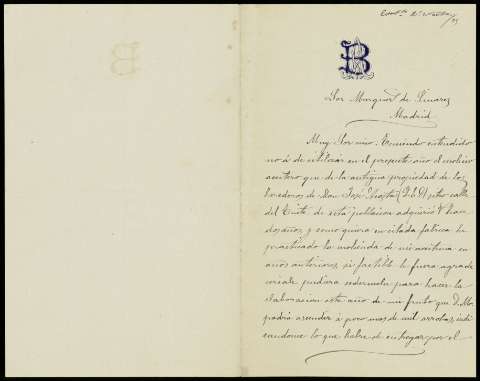 B
Sor Marques de Linares
Madrid
Muy Sor mio: Teniendo entendido
no á de utilizar en el presente año el molino
aceitero que de la antigua propiedad de los
herederos de Don José (Q.E.D) sito calle
del de esta poblacion adquirió V hace
dos años, y como quiera en citada fabrica he
practicado la molienda de mi aceituna en
años anteriores, si factible le fuera agrade
ceriale pudiera cedermela para hacer la
elaboracion este año de mi fruto que D. M.
podrá ascender á poco mas de mil arrobas, indi
candome lo que habré de entregar por el